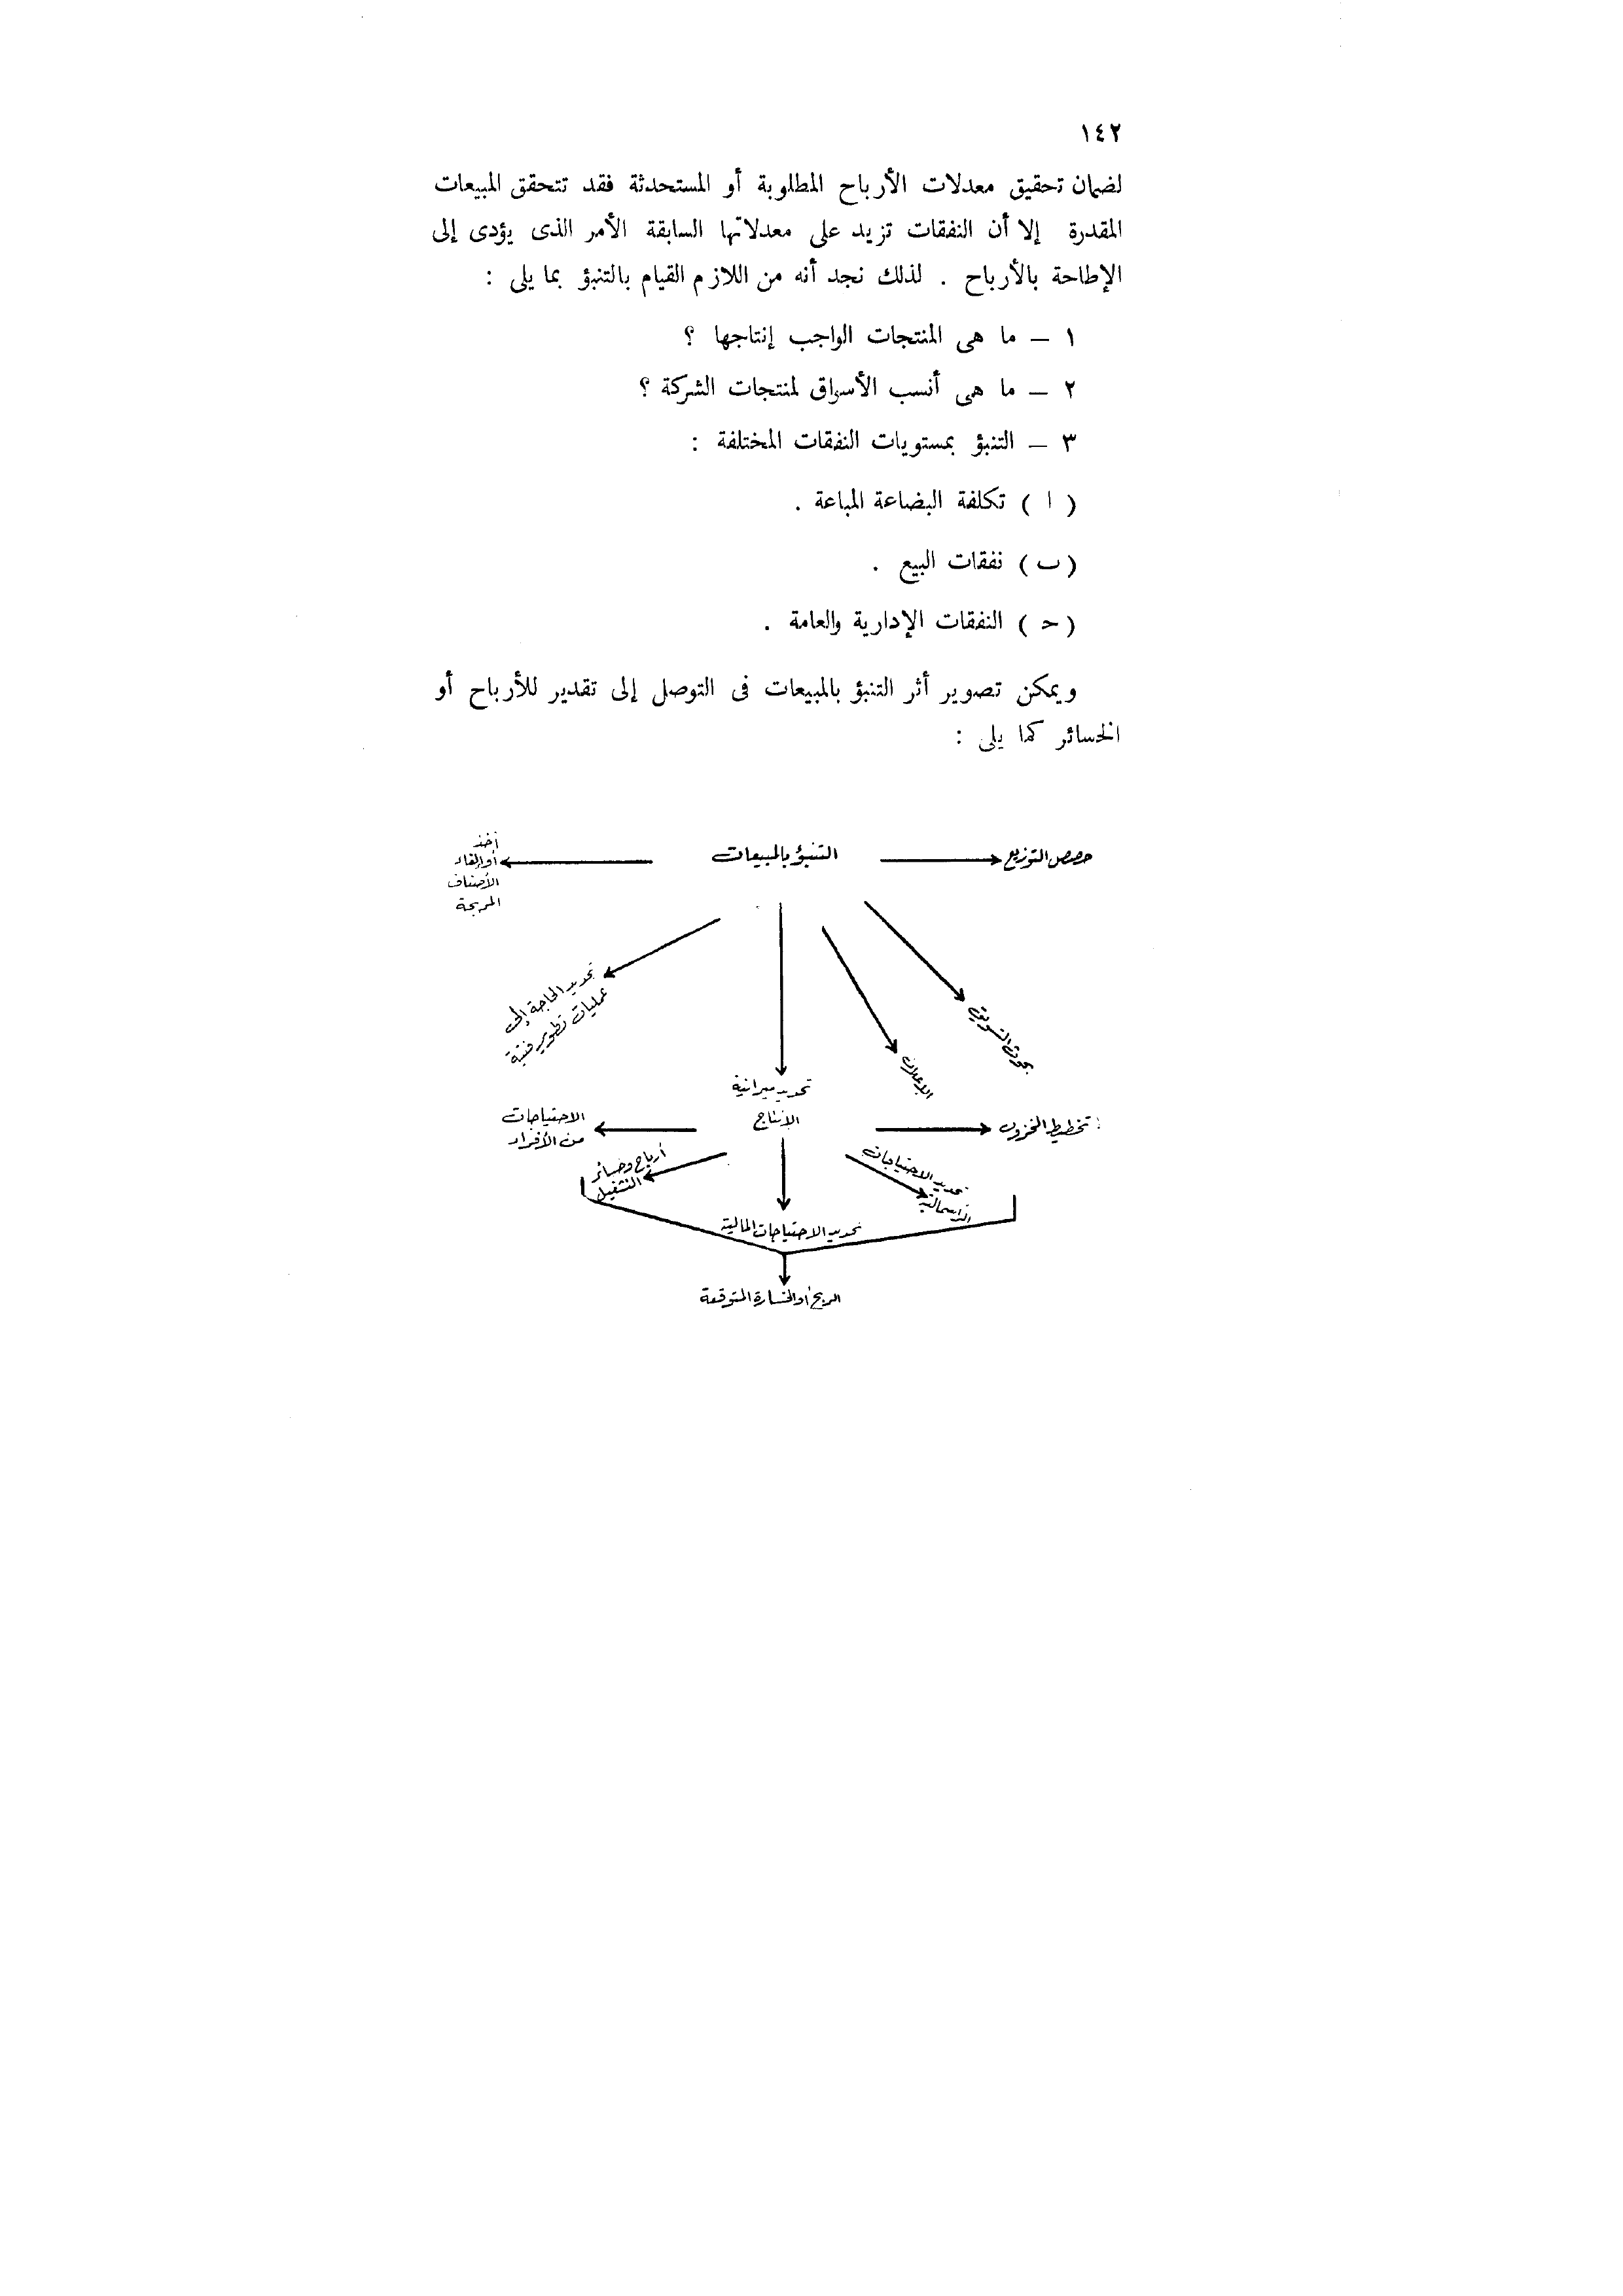 ١٤٢
لضمان تحقيق معدلات الأرباح المطلوبة أو المستحدثة فقد تتحقق المبيعات
المقدرة إلا أن النفقات تزيد على معدلاتها السابقة الأمر الذى يؤدى إلى
الإطاحة بالأرباح . لذلك نجد أنه من اللازم القيام بالتنبؤ بما يلى :
١ — ما هى المنتجات الواجب إنتاجها ؟
٢ — ما هى أنسب الأسواق لمنتجات الشركة ؟
٣ — التنبؤ بمستويات النفقات المختلفة :
( ا ) تكلفة البضاعة المباعة .
(ب) نفقات البيع .
(ح) النفقات الإدارية والعامة .
ويمكن تصوير أثر التنبؤ بالمبيعات فى التوصل إلى تقدير للأرباح أو
الخسائر كما يلى :
حصص التوزيع
التنبؤ بالمبيعات
أخذ
أو إلغاء
الأصناف
المربحة
بحوث التسويق
الإعلان
تحديد الحاجة إلى
عمليات تطوير فنية
تحديد ميزانية
الإنتاج
تخطيط المخزون
الاحتياجات
من الأفراد
تحديد الاحتياجات
الرأسمالية
أرباح وخسائر
التشغيل
تحديد الاحتياجات المالية
الربح أو الخسارة المتوقعة